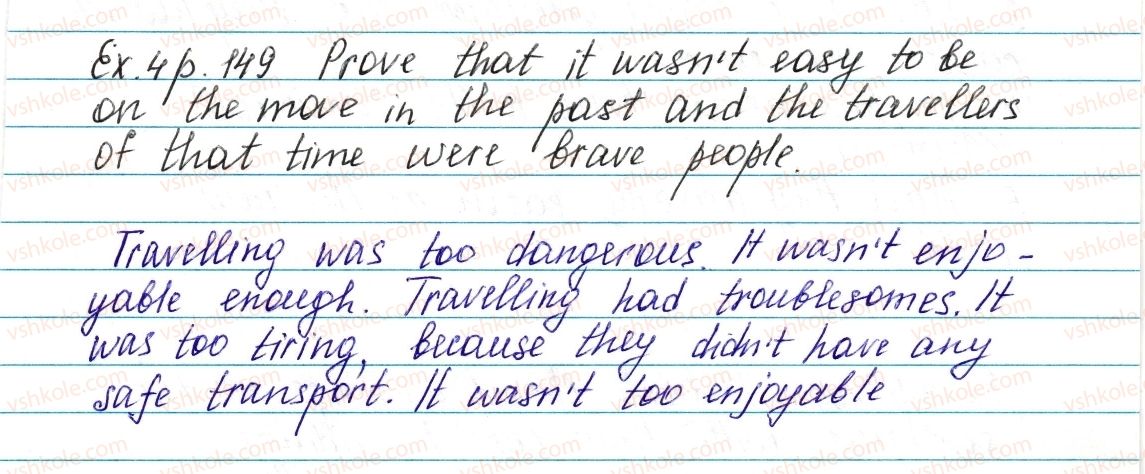 Ex. 4 p. 149 Prove that it wasn't easy to be
on the move in the past and the travellers
of that time were brave people.
Travelling was too dangerous. It wasn't enjo-
yable enough. Travelling had troublesomes. It
was too tiring, because they didn't have any
safe transport. It wasn't too enjoyable